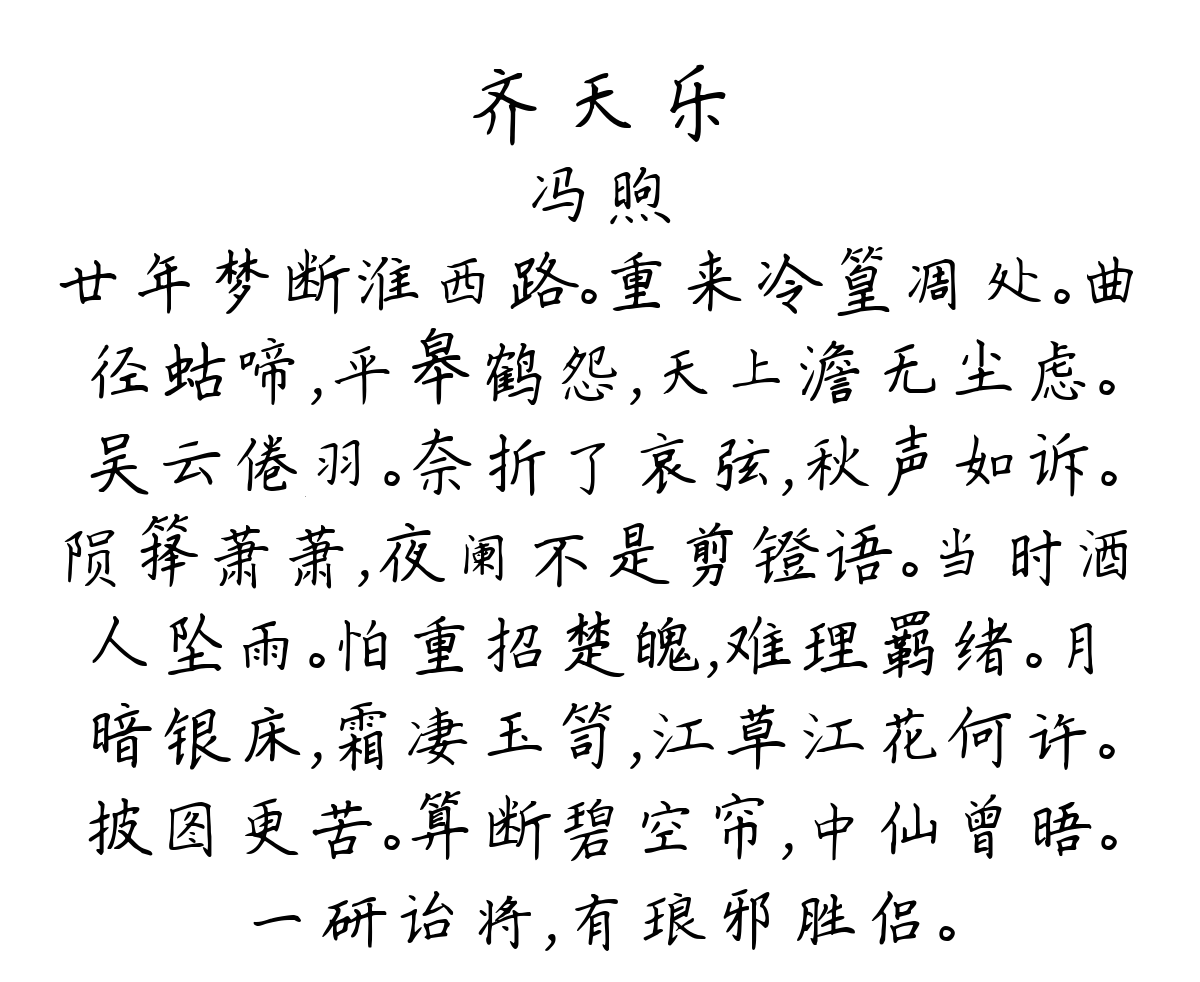 齐天乐
冯煦
廿年梦断淮西路。重来冷篁凋处。曲
径蛄啼,平皋鹤怨,天上澹无尘虑。
吴云倦羽。奈折了哀弦,秋声如诉。
陨箨萧萧,夜阑不是剪镫语。当时酒
人坠雨。怕重招楚魄,难理羁绪。月
暗银床,霜凄玉笥,江草江花何许。
披图更苦。算断碧空帘,中仙曾晤。
一研诒将,有琅邪胜侣。